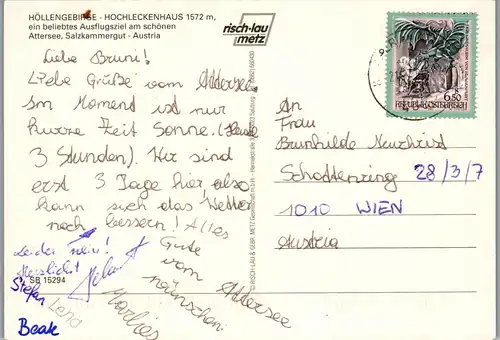 HÖLLENGEBIRGE - HOCHLECKENHAUS 1572 m,
ein beliebtes Ausflugsziel am schönen
Attersee, Salzkammergut - Austria
risch-lau
metz
Liebe Bruni!
Liebe Grüße vom Attersee.
Im Moment ist nur
kurze Zeit Sonne. (Heute
3 Stunden). Wir sind
erst 3 Tage hier also
kann sich das Wetter
noch bessern! Alles
Gute
vom Attersee
wünschen
Marlies
Leider nein!
Herzlichst
Helmut
SB 15294
Stefan
Lena
Beate
An
Frau
Brunhilde Neuchrist
Schottenring 28/3/7
1010 WIEN
Austria
6.50
REPUBLIK ÖSTERREICH